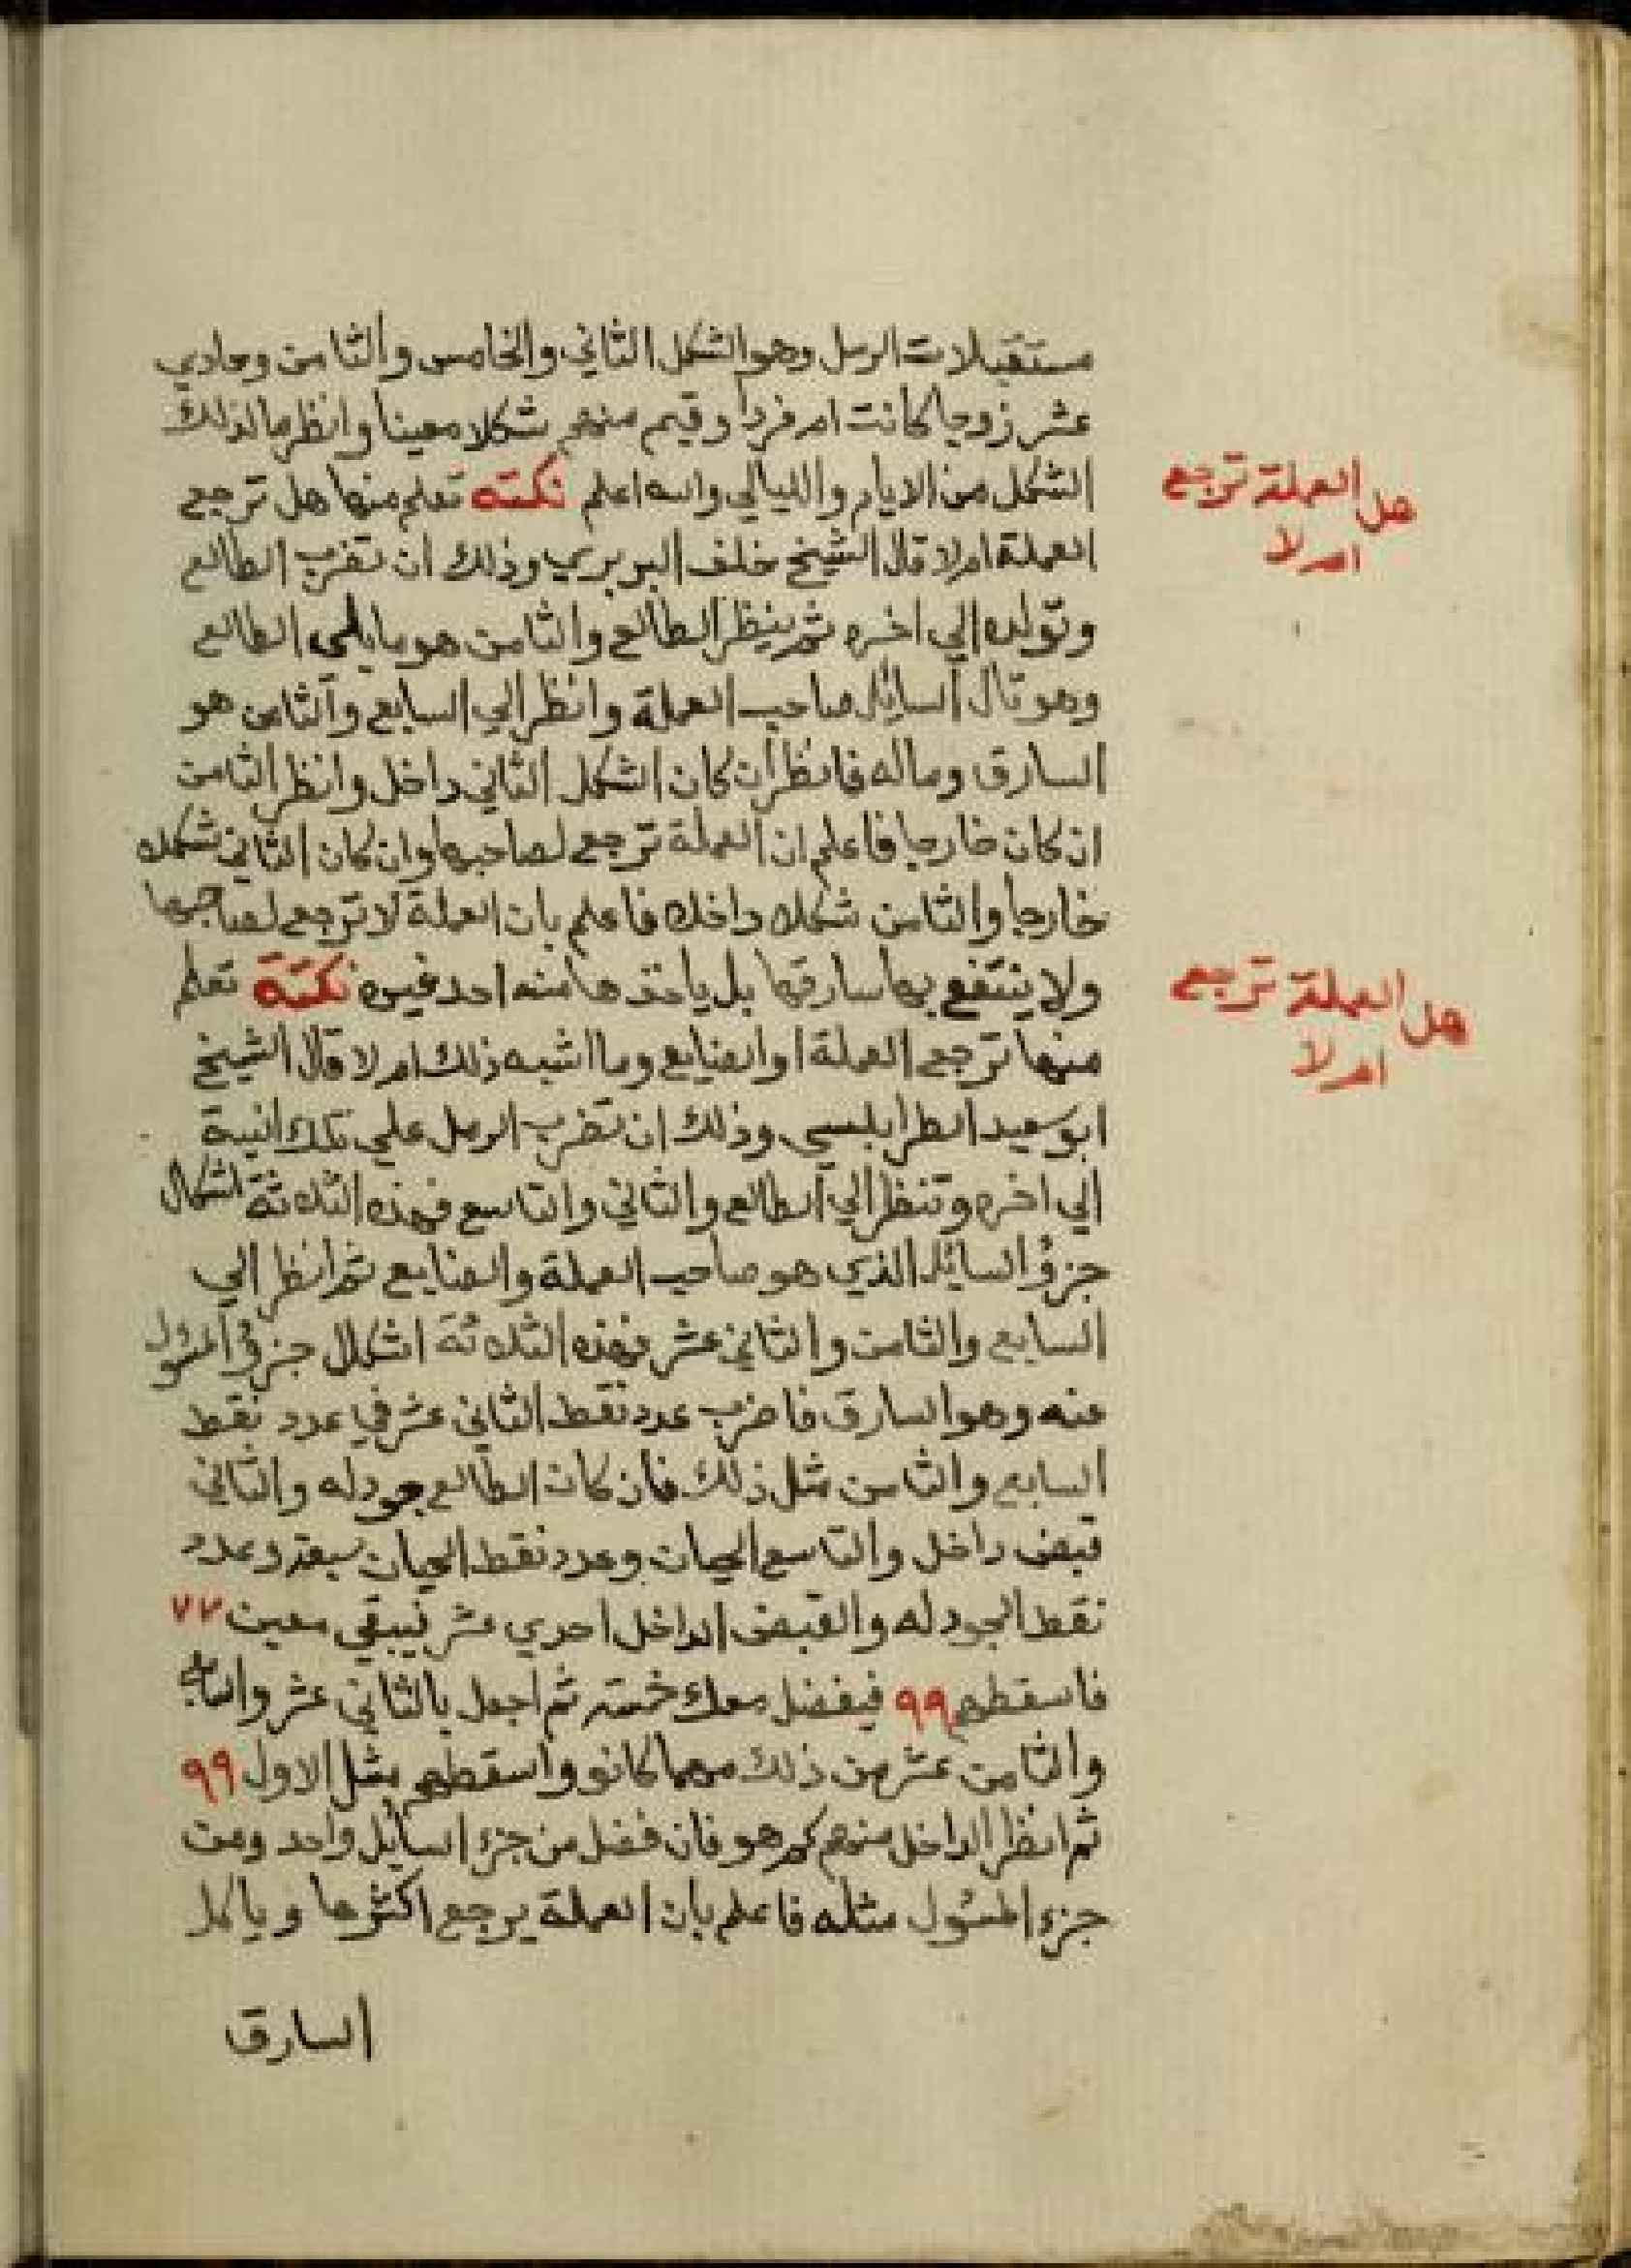 مستقبلات الرمل وهو الشكل الثاني والخامس والثامن وحادي
عشر زوجا كانت ام فردا وقيم منهم شكلا معينا وانظر ما لذلك
الشكل من الايام والليالي والله اعلم نكته تعلم منها هل ترجع
العملة ام لا قال الشيخ خلف البربري وذلك ان تضرب الطالع
وتولده الي اخره ثم ينظر الطالع والثامن هو ما يلي الطالع
وهو تال السايل صاحب العملة وانظر الي السابع والثامن هو
السارق وماله فانظر ان كان الشكل الثاني داخل وانظر الثامن
ان كان خارجا فاعلم ان العملة ترجع لصاحبها وان كان الثاني شكله
خارجا والثامن شكله داخله فاعلم بان العملة لا ترجع لصاحبها
ولا ينتفع بها سارقها بل ياخذها منه احد غيره نكتة تعلم
منها ترجع العملة او الضايع وما اشبه ذلك ام لا قال الشيخ
ابو سعيد الطرابلسي وذلك ان تضرب الرمل علي تلك النية
الي اخره وتنظر الي الطالع والثاني والتاسع فهذه الثلاثة اشكال
جزؤ السايل الذي هو صاحب العملة والضايع ثم انظر الي
السابع والثامن والثاني عشر فهذه الثلاثة اشكال جزؤ المسؤل
عنه وهو السارق فاضرب عدد نقط الثاني عشر في عدد نقط
السابع والثامن مثل ذلك فان كان الطالع جودله والثاني
قبض داخل والتاسع الحيان وعدد نقط الحيان سبعة وعدد
نقط الجودله والقبض الداخل احدي عشر فيبقي معين ٧٧
فاسقطهم ٩٩ فيفضل معك خمسة ثم اجعل بالثاني عشر والسابع
والثامن عشر من ذلك مهما كانو واسقطهم مثل الاول ٩٩
ثم انظر الداخل منهم كم هو فان فضل من جزء السايل واحد ومن
جزء المسؤل مثله فاعلم بان العملة يرجع اكثرها وياكل
السارق
هل العملة ترجع
ام لا
هل العملة ترجع
ام لا